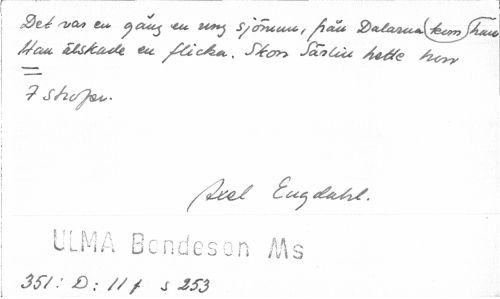 Det var en gång en ung sjöman, från Dalarna kom han
Han älskade en flicka. Skön Särlin hette hon
=
7 strofer.
Axel Engdahl.
ULMA Bondeson Ms
351: D: 11 f s 253